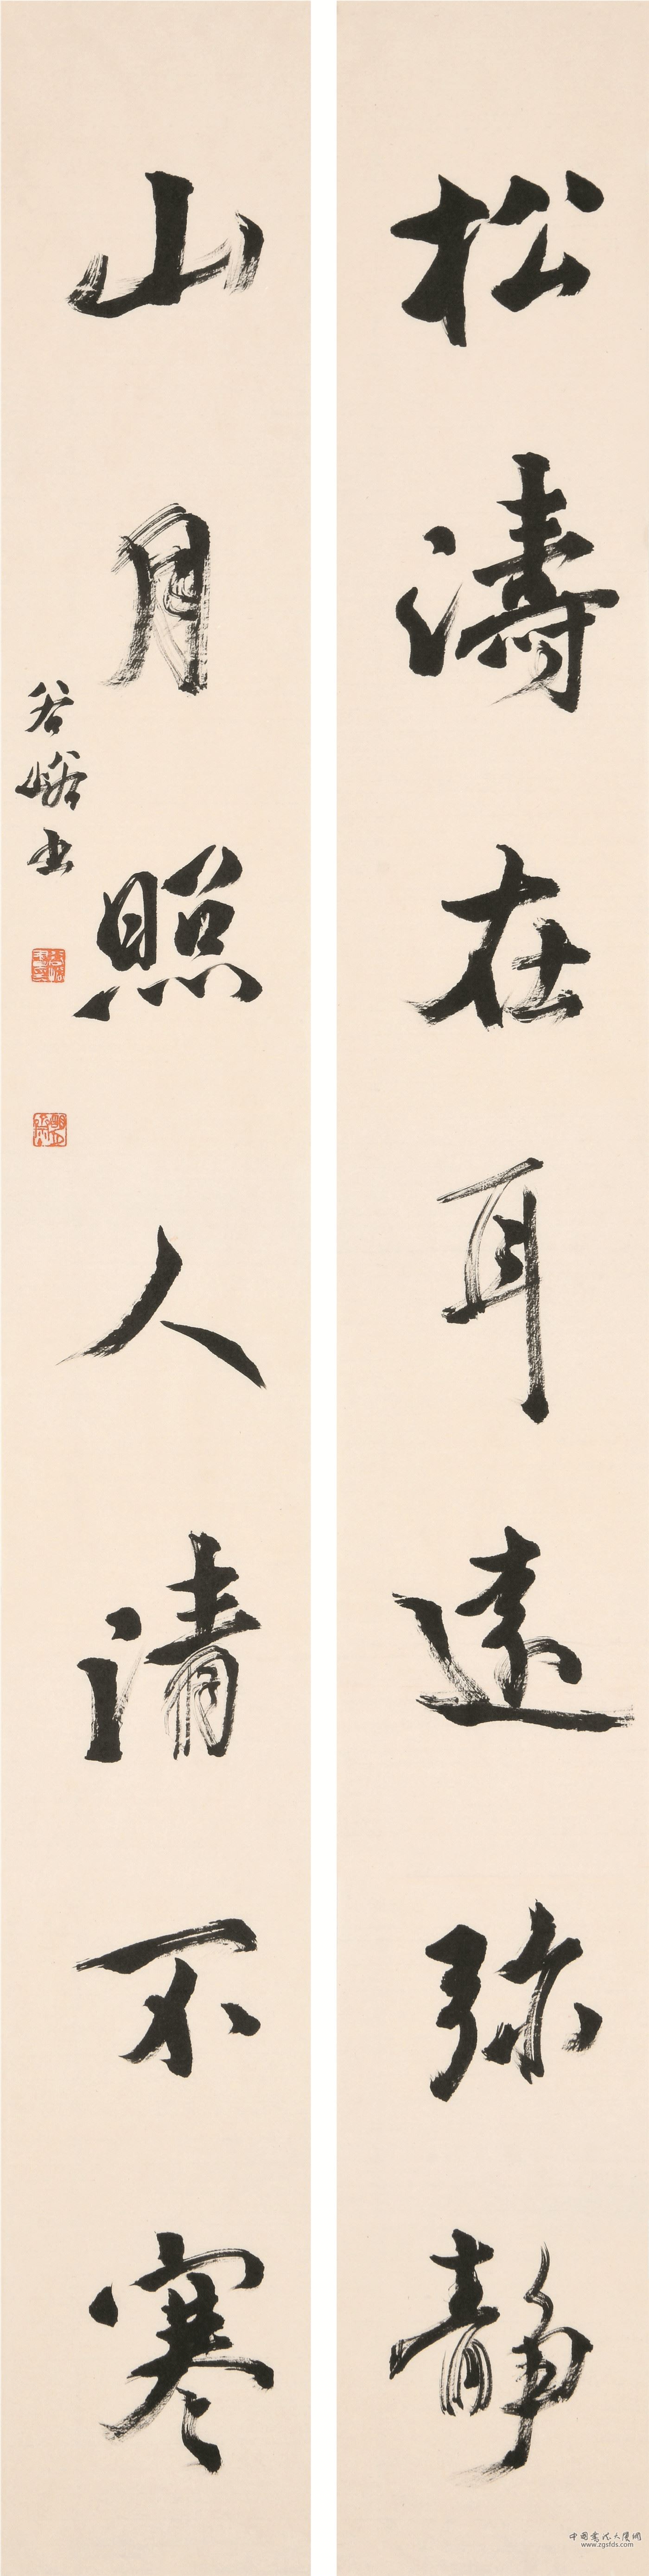 松濤在耳遠弥靜
山月照人清不寒
谷峪书
中國書法大廈網
www.zgsfds.com